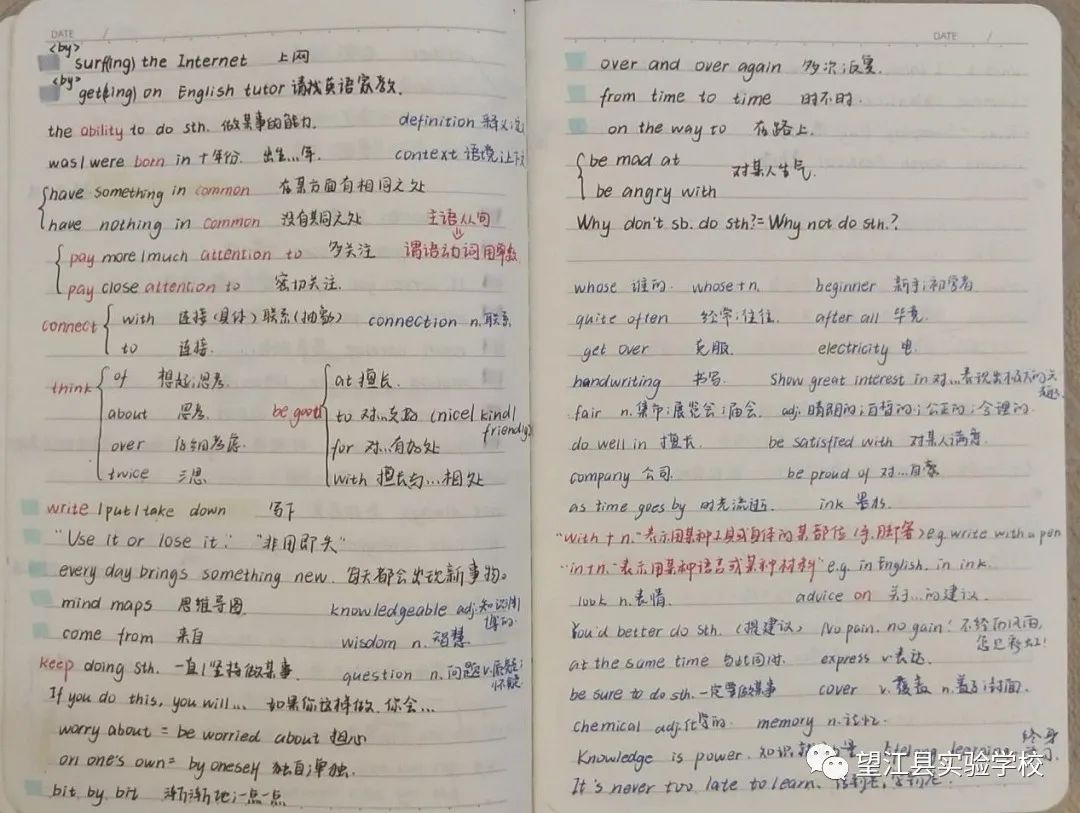 DATE
<by>
surf(ing) the Internet 上网
<by>
get(ing) on English tutor 请找英语家教.
the ability to do sth. 做某事的能力. definition 释义
was/were born in +年份. 出生...年. context 语境
have something in common 在某方面有相同之处
have nothing in common 没有共同之处 主语从句
pay more/much attention to 多关注 谓语动词用单数
pay close attention to 密切关注.
connect with 连接(具体)联系(抽象) connection n.联系
to 连接.
think of 想起;思考. be good at 擅长.
about 思考. to 对...友好 (nice/kind/friendly)
over 仔细考虑. for 对...有好处
twice 三思 with 擅长与...相处
write/put/take down 写下
"Use it or lose it." "非用即失"
every day brings something new. 每天都会出现新事物。
mind maps 思维导图. knowledgeable adj.知识渊博的.
come from 来自 wisdom n.智慧
keep doing sth. 一直/坚持做某事 question n.问题 v.质疑;怀疑
If you do this, you will... 如果你这样做.你会...
worry about = be worried about 担心
on one's own = by oneself 独自;单独.
bit by bit 渐渐地;一点一点
DATE /
over and over again 多次;反复.
from time to time 时不时.
on the way to 在路上.
be mad at 对某人生气.
be angry with
Why don't sb. do sth?=Why not do sth.?
whose 谁的. whose+n. beginner 新手;初学者
quite often 经常;往往. after all 毕竟.
get over 克服. electricity 电.
handwriting 书写. Show great interest in 对...表现出极大的兴趣.
fair n.集市;展览会;庙会. adj.晴朗的;白皙的;公正的;合理的.
do well in 擅长 be satisfied with 对某人满意.
company 公司. be proud of 对...自豪
as time goes by 时光流逝. ink 墨水.
"With + n."表示用某种工具或身体的某部位(手.脚等) e.g. write with a pen
"in+n."表示用某种语言或某种材料" e.g. in English. in ink.
look n.表情. advice on 关于...的建议.
You'd better do sth. (提建议) No pain. no gain! 不经历风雨,怎见彩虹!
at the same time 与此同时. express v.表达.
be sure to do sth.一定要做某事 cover v.覆盖 n.盖子;封面.
chemical adj.化学的. memory n.记忆.
Knowledge is power. 知识 量. lifelong learning 终身
It's never too late to learn.
望江县实验学校